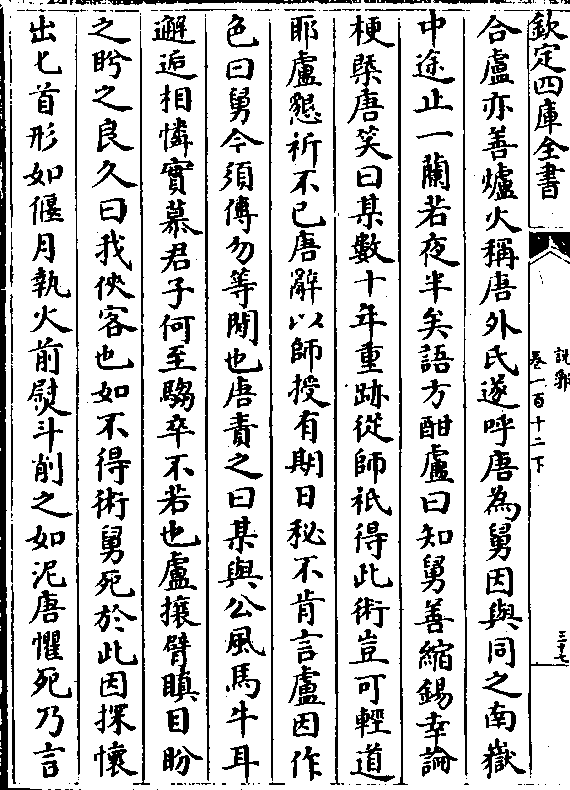 欽定四庫全書
說郛
卷一百十二下
三十七
合盧亦善爐火稱唐外氏遂呼唐為舅因與同之南嶽
中途止一蘭若夜半矣語方酣盧曰知舅善縮錫幸論
梗槩唐笑曰某數十年重跡從師祇得此術豈可輕道
耶盧懇祈不已唐辭以師授有期日秘不肯言盧因作
色曰舅今須傳勿等閒也唐責之曰某與公風馬牛耳
邂逅相憐實慕君子何至騶卒不若也盧攘臂瞋目眄
之眄之良久曰我俠客也如不得術舅死於此因探懷
出匕首形如偃月執火前熨斗削之如泥唐懼死乃言